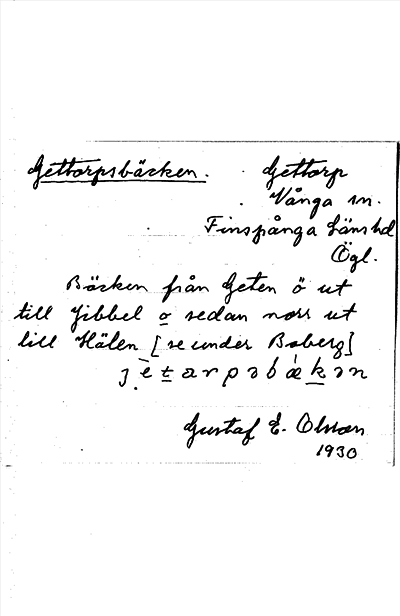 Gettorpsbäcken. Gettorp
Vånga sn.
Finspånga länshd
Ögl.
Bäcken från Geten ö ut
till Jibbel o sedan norr ut
till Hälen [se under Boberg]
Gustaf E. Olsson
1930